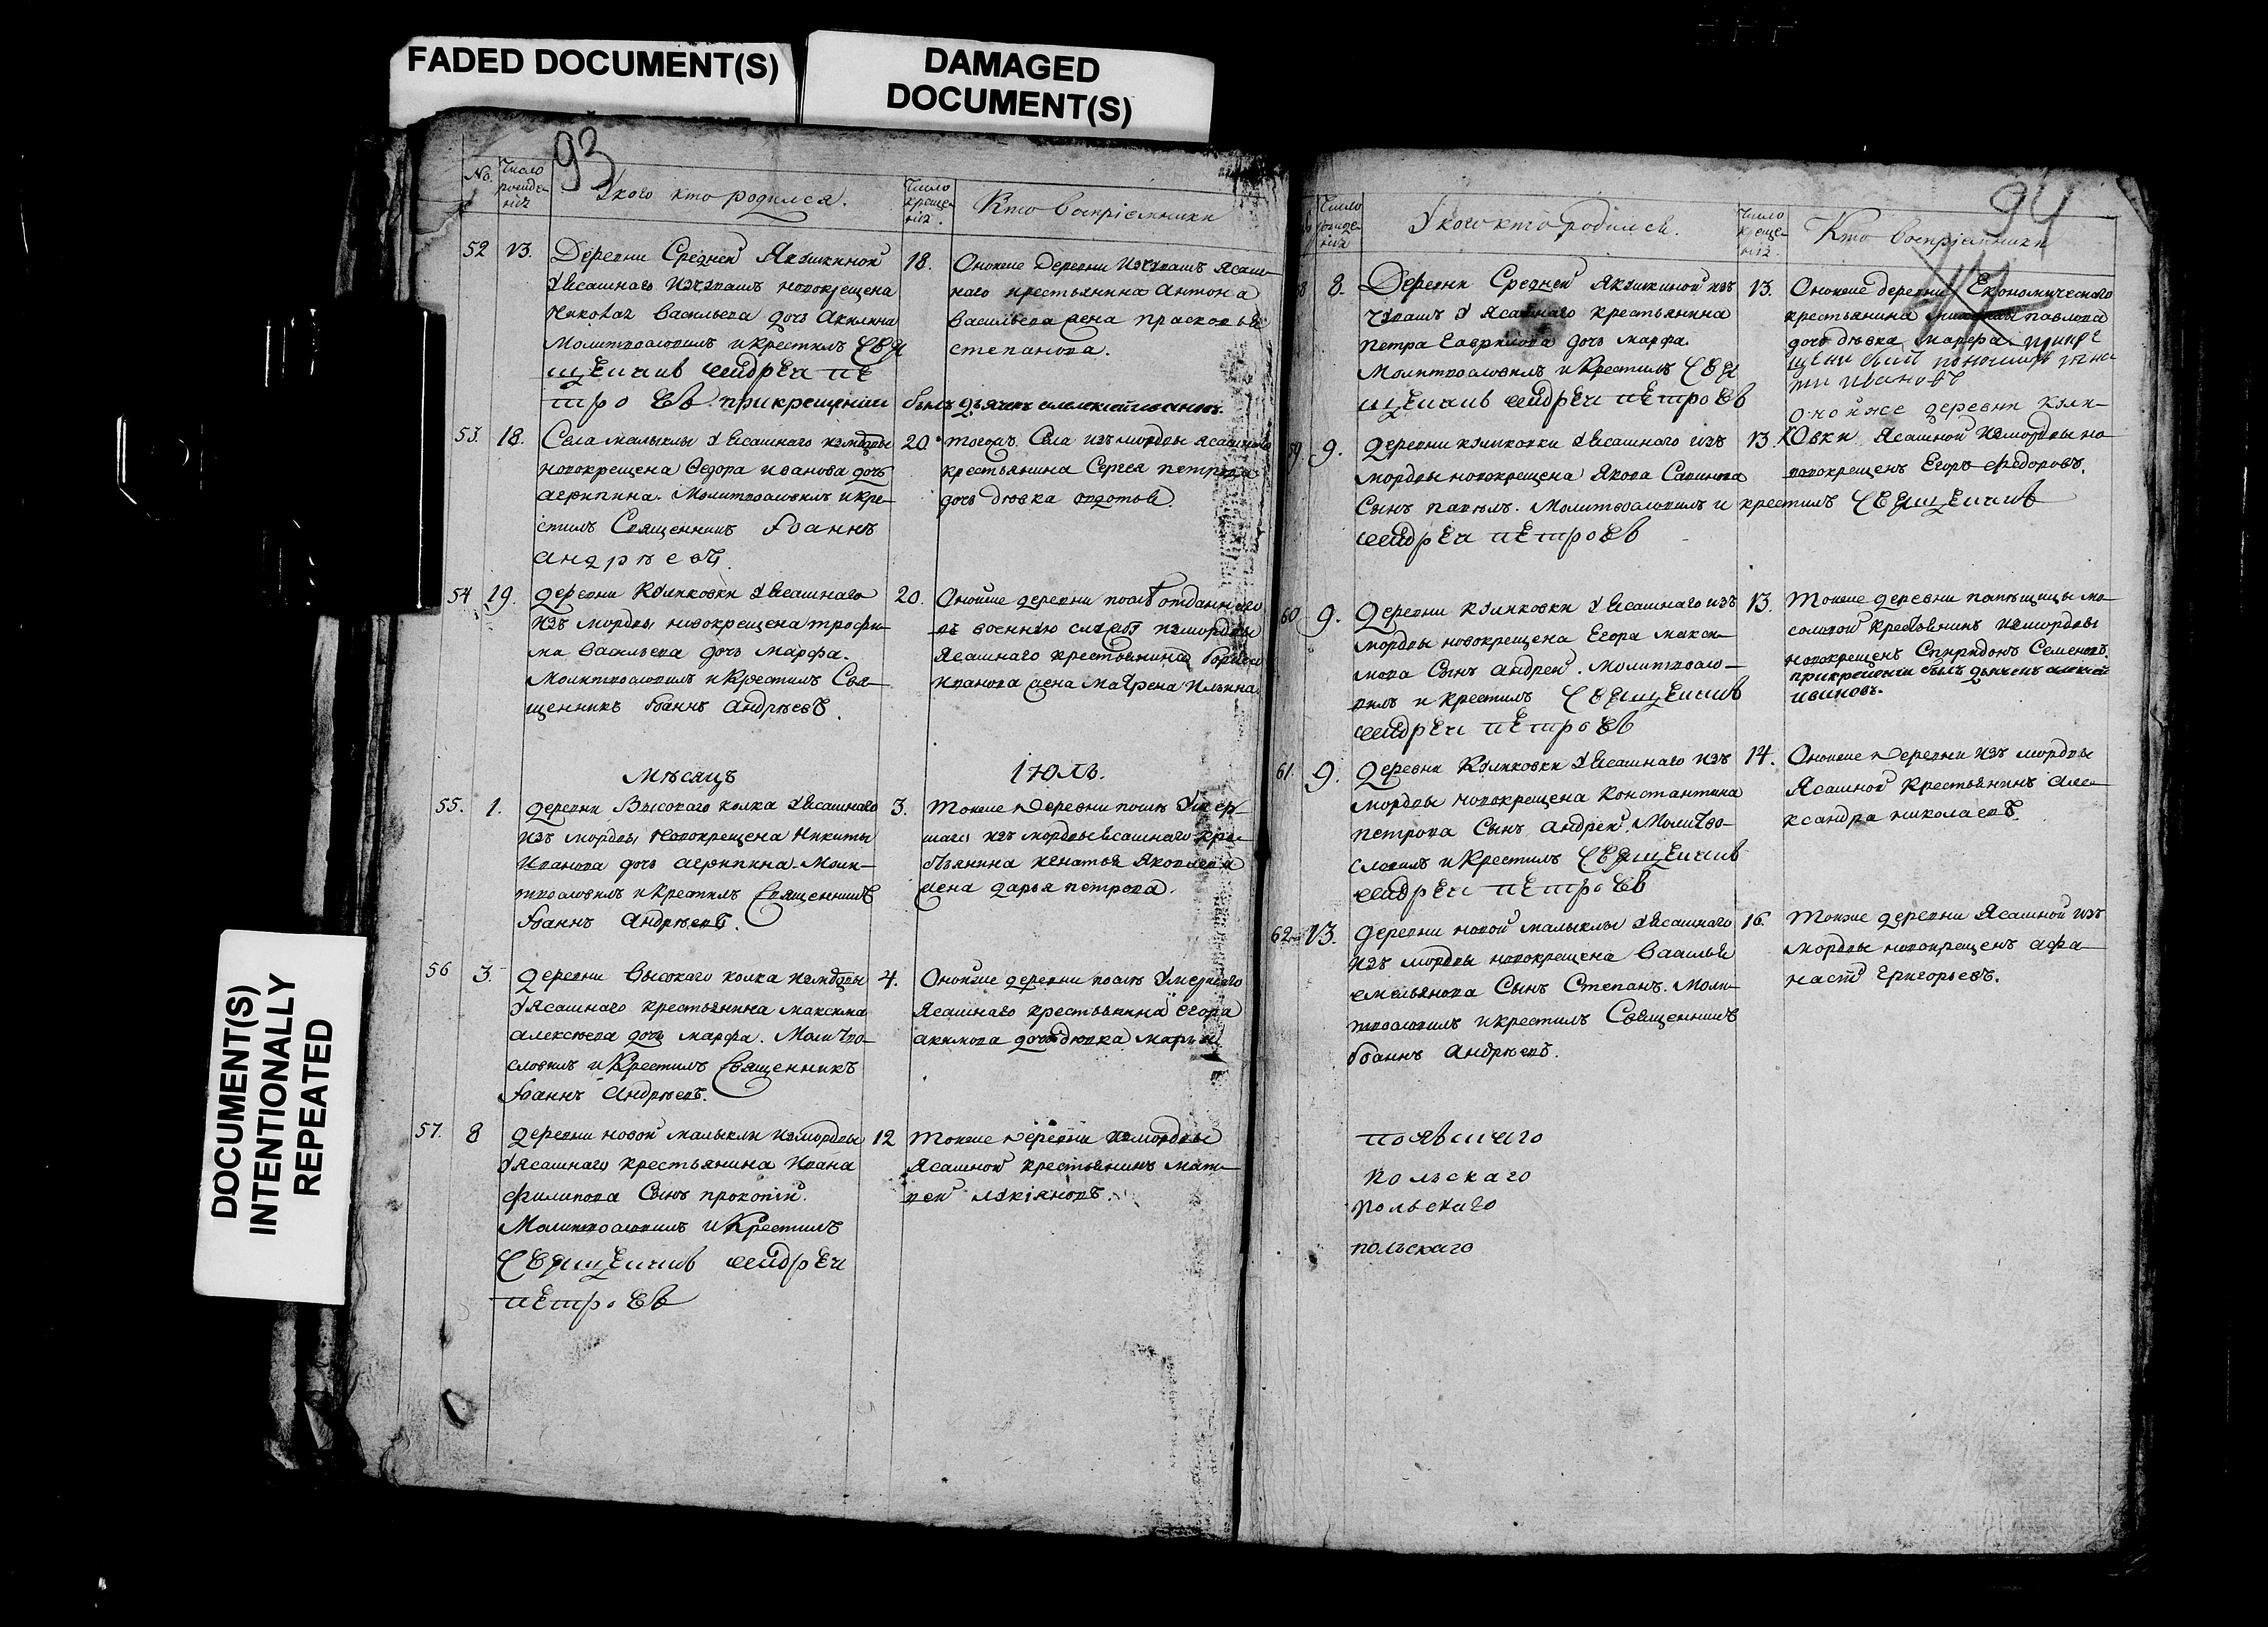 FADED DOCUMENT(S)
DAMAGED
DOCUMENT(S)
DOCUMENT(S)
INTENTIONALLY
REPEATED
93
No.
Число рожде-нія
У кого кто родился.
Число креще-нія.
Кто воспріемники
52 13. Деревни Средней Якушкиной
у Ясашнаго изчувашъ новокрещена
Васильева дочь Акилина
Молитвословилъ и крестилъ Свя
щенникъ Андрей Пе
тровъ прикрещении былъ дьячекъ Алексей Ивановъ.
18. Оноиже деревни изчувашъ Ясаш-
наго крестьянина Антона
Васильева жена Прасковья
Степанова.
53. 18. Села Малыклы у Ясашнаго измордвы
новокрещена Федора Иванова дочь
Агрипина. Молитвословилъ и кре-
стилъ Священникъ Іоаннъ
Андрѣевъ.
20. Тогожъ Села изъ мордвы Ясашнаго
крестьянина Сергея Петрова
дочь дѣвка Федотья.
54 19. Деревни Куликовки у Ясашнаго
изъ мордвы новокрещена Трофи-
ма Васильева дочь Марфа.
Молитвословилъ и Крестилъ Свя-
щенникъ Іоаннъ Андрѣевъ.
20. Оноиже деревни послѣ отданнаго
въ военную службу измордвы
Ясашнаго крестьянина Бориса
Иванова жена Матрена Ильина.
Мѣсяцъ Іюль.
55. 1. Деревни Высокаго колка у Ясашнаго
изъ мордвы Новокрещена Никиты
Иванова дочь Агрипина. Моли-
твословилъ и Крестилъ Священникъ
Іоаннъ Андрѣевъ.
3. Тоиже Деревни послѣ Умер-
шаго изъ мордвы Ясашнаго кре-
стьянина Игнатья Яковлева
жена Дарья Петрова.
56 3. Деревни Высокаго колка измордвы
у Ясашнаго крестьянина Максима
Алексѣева дочь Марфа. Молитво-
словилъ и Крестилъ Священникъ
Іоаннъ Андрѣевъ.
4. Оноиже деревни послѣ Умершаго
Ясашнаго крестьянина Егора
Акимова дочь дѣвка Марья
57. 8 Деревни новой малыклы измордвы
у Ясашнаго крестьянина Ивана
Филипова Сынъ Прокопій.
Молитвословилъ и Крестилъ
Священникъ Андрей
Петровъ
12 Тоиже Деревни измордвы
Ясашной крестьянинъ Мат-
вей Лукіяновъ.
94
Число рожде-нія
У кого кто родился.
Число креще-нія.
Кто воспріемники
58 8. Деревни Средней Якушкиной изъ
чувашъ у Ясашнаго крестьянина
Петра Гаврилова дочь Марфа.
Молитвословилъ и Крестилъ Свя
щенникъ Андрей Петровъ
13. Оноиже деревни Економическаго
крестьянина Павлова
дочь дѣвка Марфа. прикре
щени былъ пономарь
Ивановъ
59. 9. Деревни Куликовки у Ясашнаго изъ
мордвы новокрещена Якова Савинова
Сынъ Павелъ. Молитвословилъ и крестилъ Священникъ
Андрей Петровъ
13. Онойже деревни Кули-
ковки Ясашной измордвы но-
вокрещенъ Егоръ Федоровъ.
60 9. Деревни Куликовки у Ясашнаго изъ
мордвы новокрещена Егора Макси-
мова Сынъ Андрей. Молитвосло-
вилъ и крестилъ Священникъ
Андрей Петровъ
13. Тоиже деревни
крестьянинъ измордвы
новокрещенъ Спиридонъ Семеновъ.
прикрещении былъ дьячекъ Алексей
Ивановъ.
61. 9. Деревни Куликовки у Ясашнаго изъ
мордвы новокрещена Константина
Петрова Сынъ Андрей. Молитво-
словилъ и Крестилъ Священникъ
Андрей Петровъ
14. Оноиже Деревни изъ мордвы
Ясашной Крестьянинъ Але-
ксандра Николаевъ.
62 13. Деревни новой малыклы у Ясашнаго
изъ мордвы новокрещена Василья
Емельянова Сынъ Степанъ. Моли-
твословилъ и крестилъ Священникъ
Іоаннъ Андрѣевъ.
16. Тоиже деревни Ясашной изъ
мордвы новокрещенъ Афа-
насей Григорьевъ.
польскаго
польскаго
польскаго